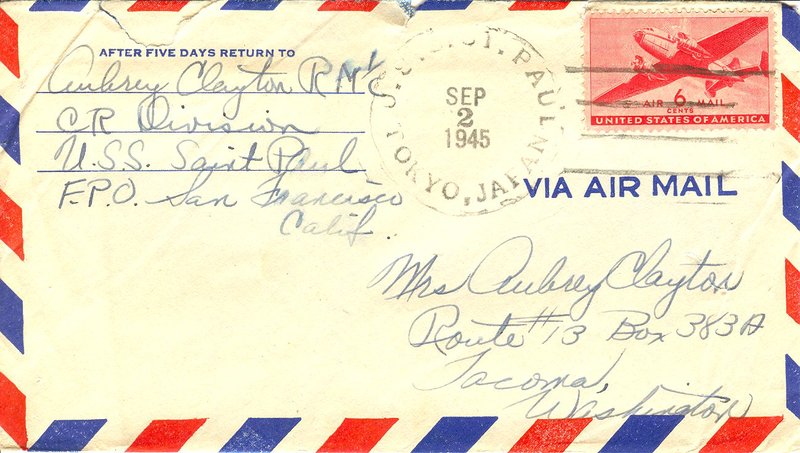 AFTER FIVE DAYS RETURN TO
Aubrey Clayton RM2C
CR Division
U.S.S. Saint Paul
F.P.O. San Francisco
Calif
U.S.S. ST. PAUL
SEP
2
1945
TOKYO, JAPAN
AIR 6 MAIL
CENTS
UNITED STATES OF AMERICA
VIA AIR MAIL
Mrs Aubrey Clayton
Route #13 Box 383A
Tacoma,
Washington